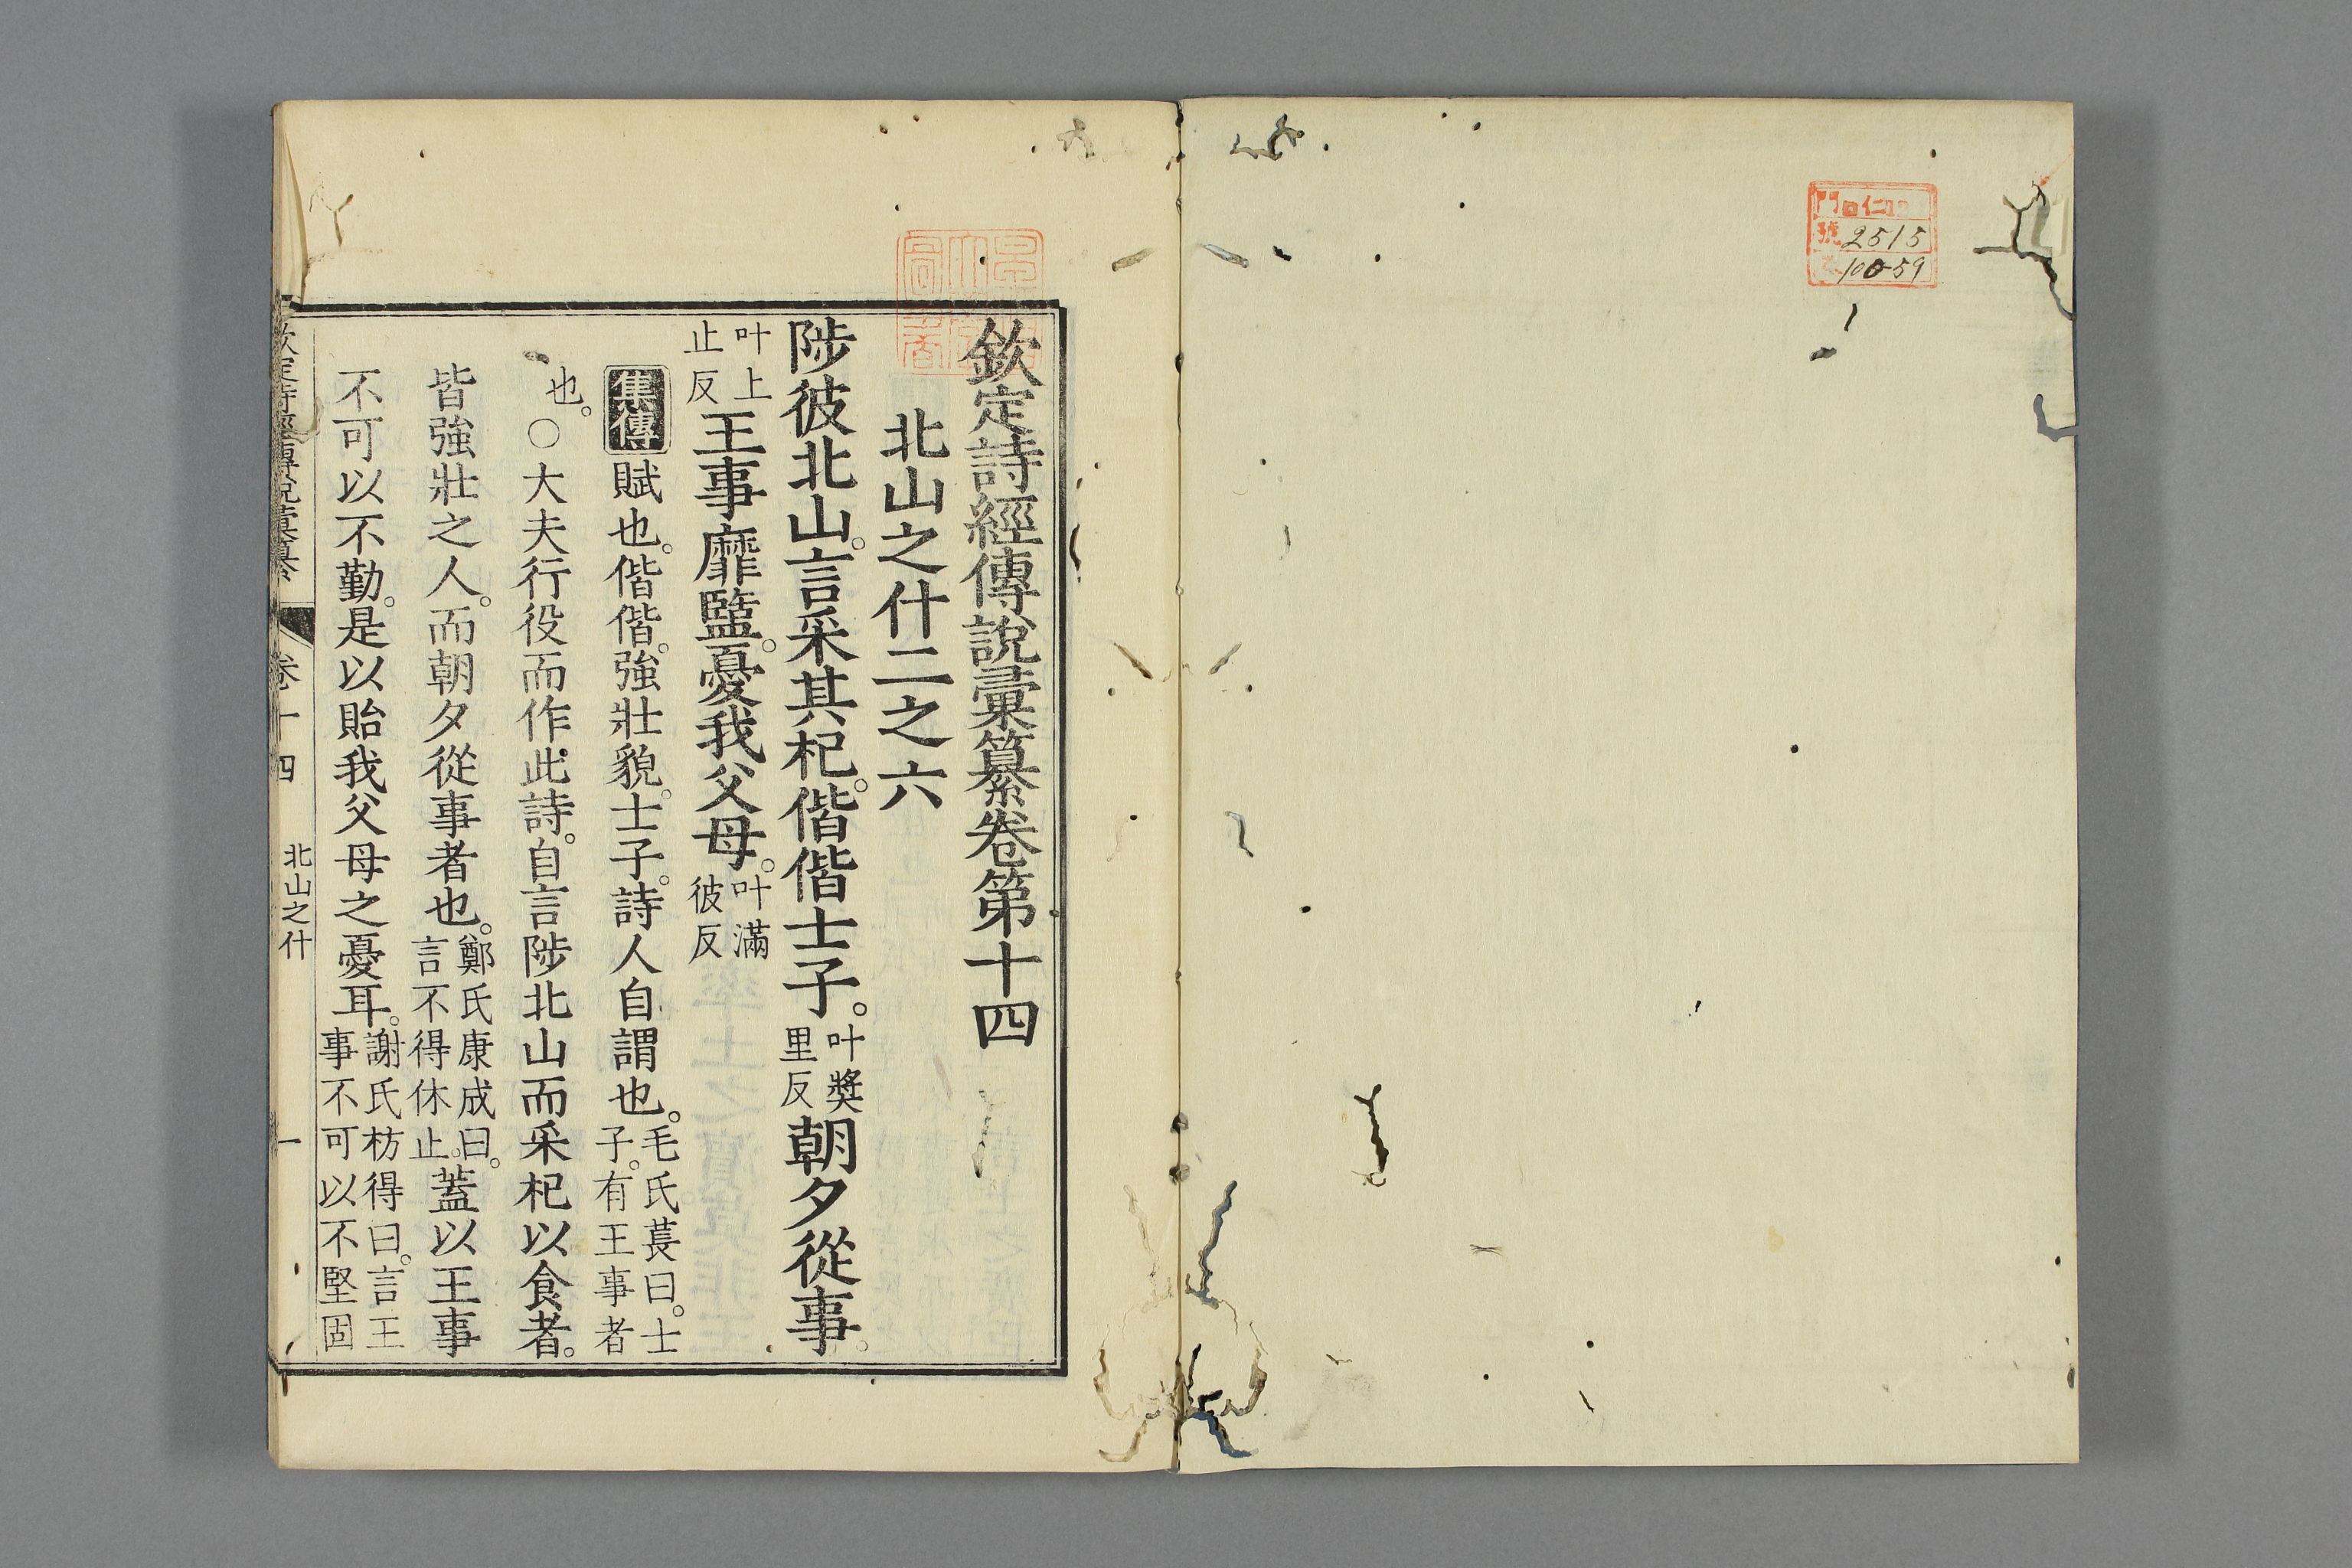 門 仁
號 2515
100-59
欽定詩經傳說彙纂卷第十四
北山之什二之六
陟彼北山。言采其杞。偕偕士子。叶獎里反朝夕從事。
叶上止反王事靡盬。憂我父母。叶滿彼反
集傳賦也。偕偕。強壯貌。士子。詩人自謂也。毛氏萇曰。士子。有王事者
也。○大夫行役而作此詩。自言陟北山而采杞以食者。
皆強壯之人。而朝夕從事者也。鄭氏康成曰。言不得休止。蓋以王事
不可以不勤。是以貽我父母之憂耳。謝氏枋得曰。言王事不可以不堅固
欽定詩經傳說彙纂 卷十四 北山之什 一